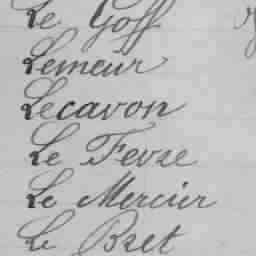 Le Goff
Lemeur
Lecavon
Le Fevre
Le Mercier
Le Bret